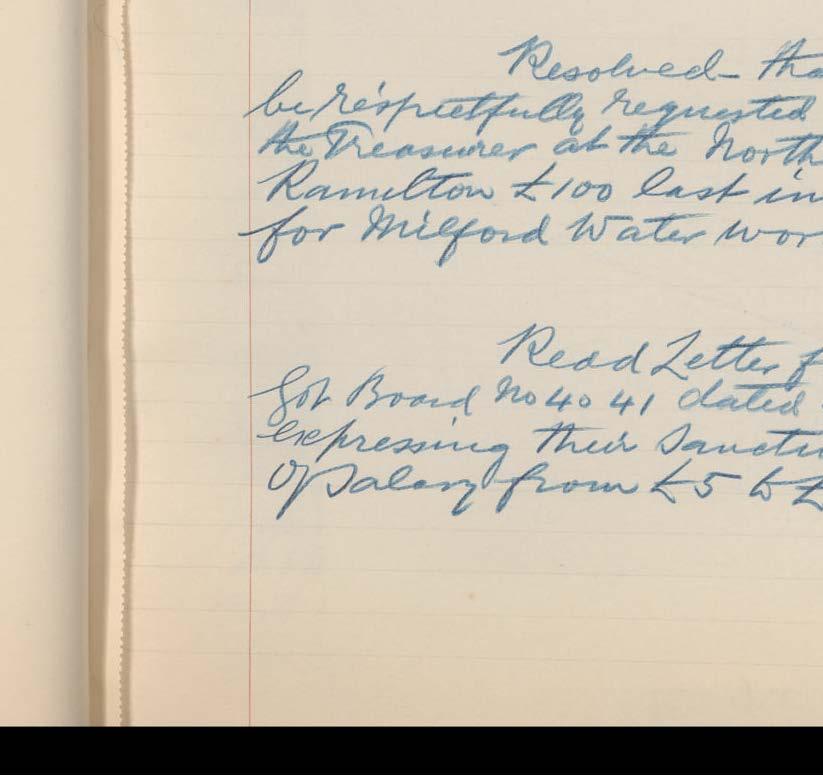 Resolved - tha
be respectfully requested
the Treasurer at the North
Ramelton £100 last in
for Milford Water wor
Read Letter f
Got Board No 40 41 dated
expressing their Sanctio
of Salary from £5 to £